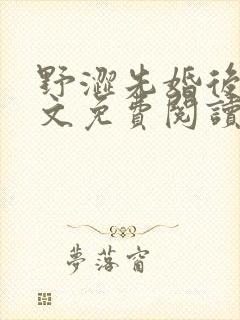 野澀先婚後
文免費閱讀
夢落窗